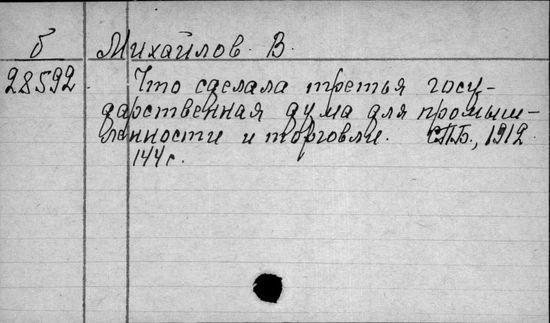 б Михайлов. В.
28592. Что сделала третья госу-
дарственная дума для промыш-
ленности и торговли. СПБ., 1912
144 с.